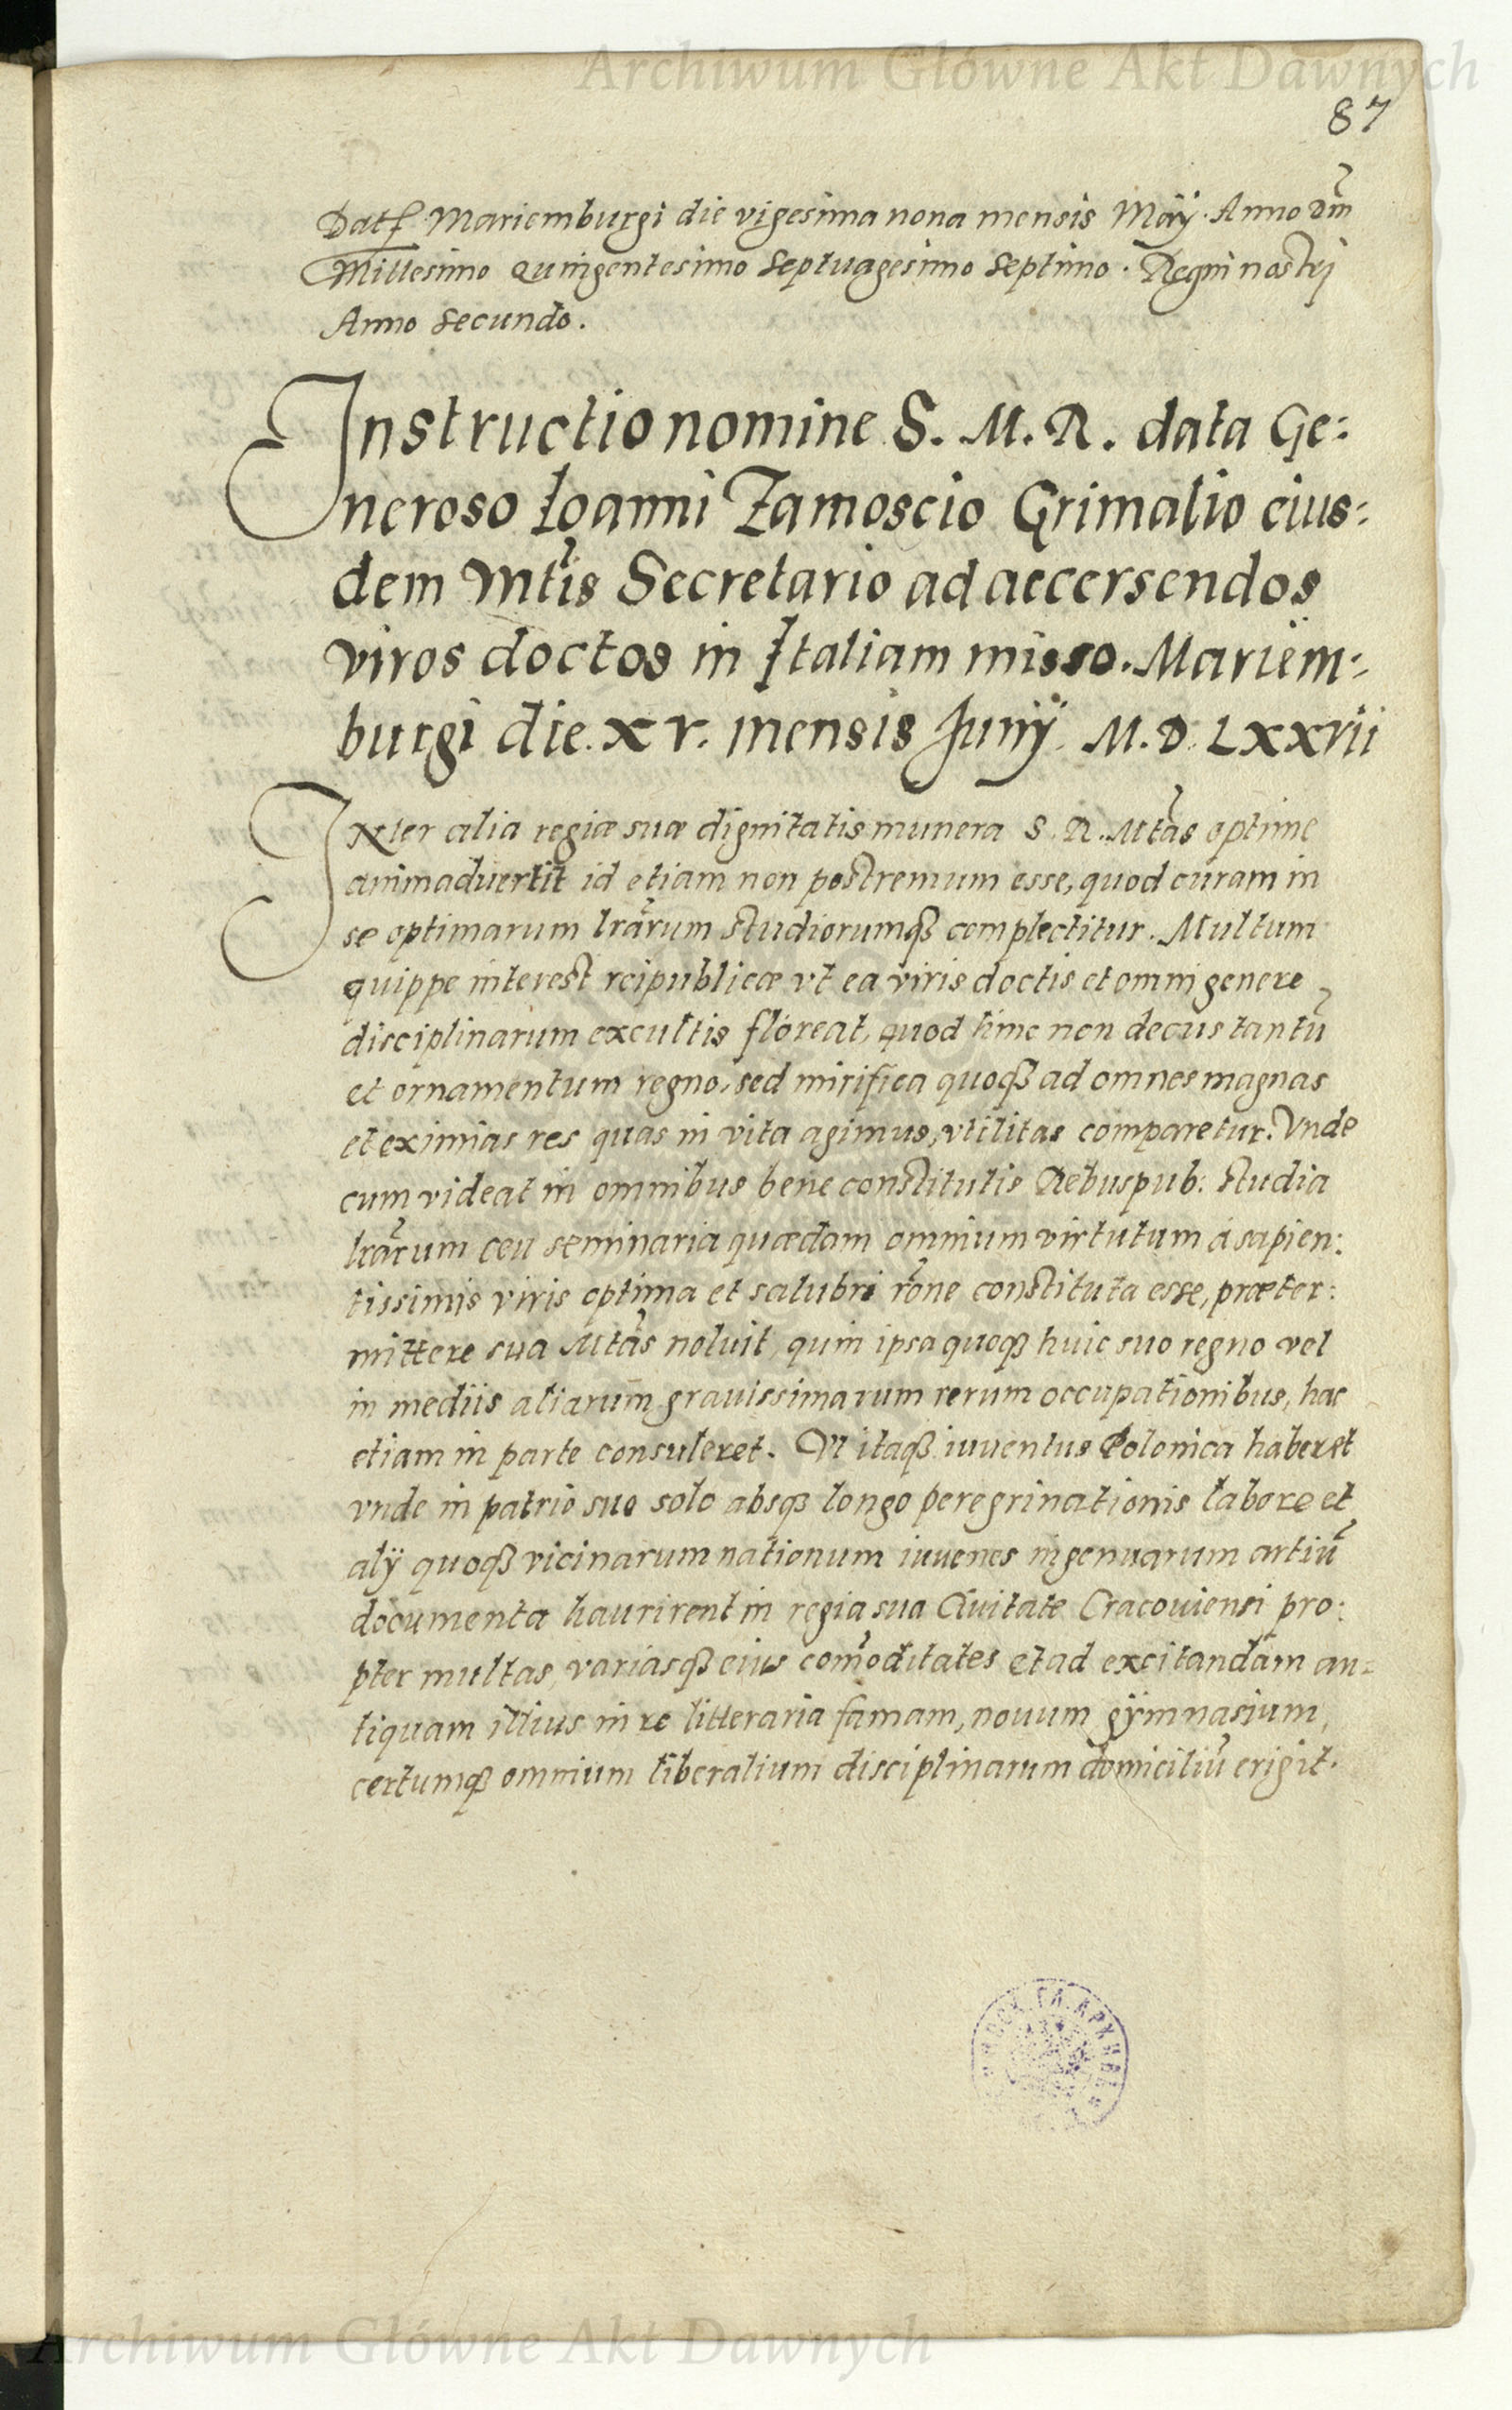 Archiwum Główne Akt Dawnych
87
Dat. Mariemburgi die vigesima nona mensis Maÿ. Anno dm̃
Millesimo Quingentesimo Septuagesimo Septimo. Regni nostri
Anno Secundo.
Instructio nomine S. M. R. data Ge:
neroso Ioanni Zamoscio Grimalio eius:
dem Mtis Secretario ad accersendos
viros doctos in Italiam misso. Mariem:
burgi die. XV. mensis Junÿ M.D. LXXVii
INter alia regiæ suæ dignitatis munera S. R. Mtas optime
animaduertit id etiam non postremum esse, quod curam in
se optimarum lrãrum studiorumq; complectitur. Multum
quippe interest reipublicæ vt ea viris doctis et omni genere
disciplinarum excultis floreat, quod hinc non decus tantũ
et ornamentum regno, sed mirifica quoq; ad omnes magnas
et eximias res quas in vita agimus, vtilitas comparetur. Vnde
cum videat in omnibus bene constitutis Rebuspub: studia
lrãrum ceu seminaria quædam omnium virtutum à sapien:
tissimis viris optima et salubri rõne constituta esse, præter:
mittere sua Mtas noluit, quin ipsa quoq; huic suo regno vel
in mediis aliarum grauissimarum rerum occupationibus, hac
etiam in parte consuleret. Vt itaq; iuuentus Polonica haberet
vnde in patrio suo solo absq; longo peregrinationis labore et
alÿ quoq; vicinarum nationum iuuenes ingenuarum artiũ
documenta haurirent in regia sua Ciuitate Cracouiensi pro:
pter multas, variasq; eius com̃oditates et ad excitandam an:
tiquam illius in re litteraria famam, nouum gÿmnasium,
certumq; omnium liberalium disciplinarum domiciliũ erigit.
Archiwum Główne Akt Dawnych